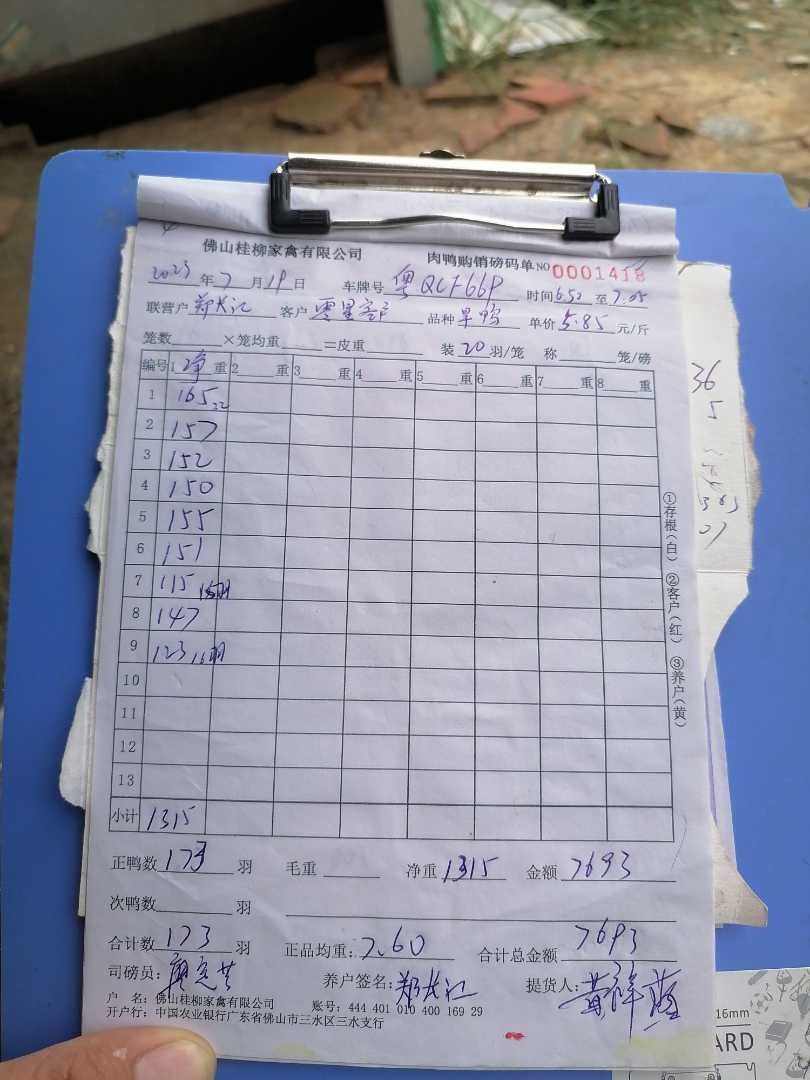 佛山桂柳家禽有限公司 肉鸭购销磅码单 NO 0001418
2023 年 7 月 19 日 车牌号 粤QCF669 时间 6.52 至 7.05
联营户 郑长江 客户 品种 旱鸭 单价 5.85 元/斤
笼数 ×笼均重 =皮重 装 20 羽/笼 称 笼/磅
编号 1 净 重 2 重 3 重 4 重 5 重 6 重 7 重 8 重
1 165 22
2 157
3 152
4 150
5 155
6 151
7 115 15羽
8 147
9 123 16羽
10
11
12
13
小计 1315
正鸭数 173 羽 毛重 净重 1315 金额 7693
次鸭数 羽
合计数 173 羽 正品均重: 7.60 合计总金额 7693
司磅员: 养户签名: 郑长江 提货人:
户 名: 佛山桂柳家禽有限公司 账号: 444 401 010 400 169 29
开户行: 中国农业银行广东省佛山市三水区三水支行
①存根(白) ②客户(红) ③养户(黄)
36
5
16mm
ARD